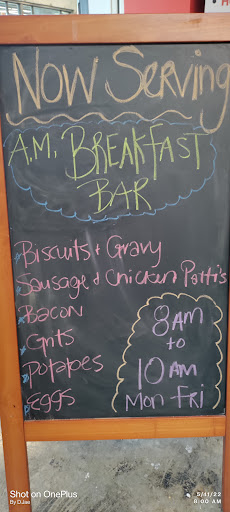 Now Serving
A.M. BREAKFAST
BAR
Biscuits & Gravy
Sausage & Chicken Patti's
Bacon
Grits
Potatoes
Eggs
8AM
to
10AM
Mon-Fri
Shot on OnePlus
By DJae
5/11/22
8:00 AM